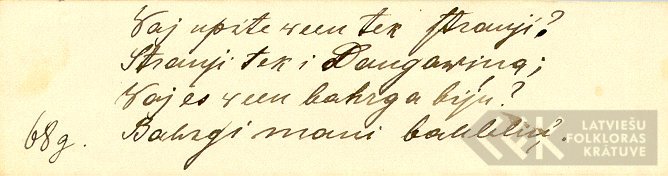 Vaj upite ween tek strauji?
Strauji tek i Daugawiņa;
Vaj es ween bahrga biju?
68g. Bahrgi mani bahleliņ.
LATVIEŠU
FOLKLORAS
KRĀTUVE